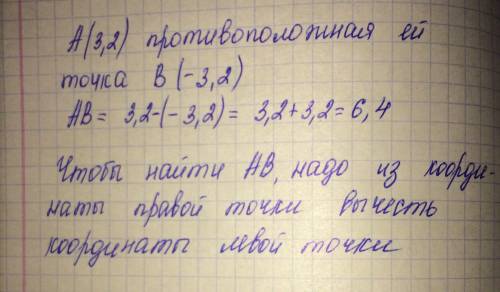 A(3,2) противоположная ей
точка B (-3,2)
AB = 3,2-(-3,2) = 3,2+3,2 = 6,4
Чтобы найти AB, надо из коорди-
наты правой точки вычесть
координаты левой точки